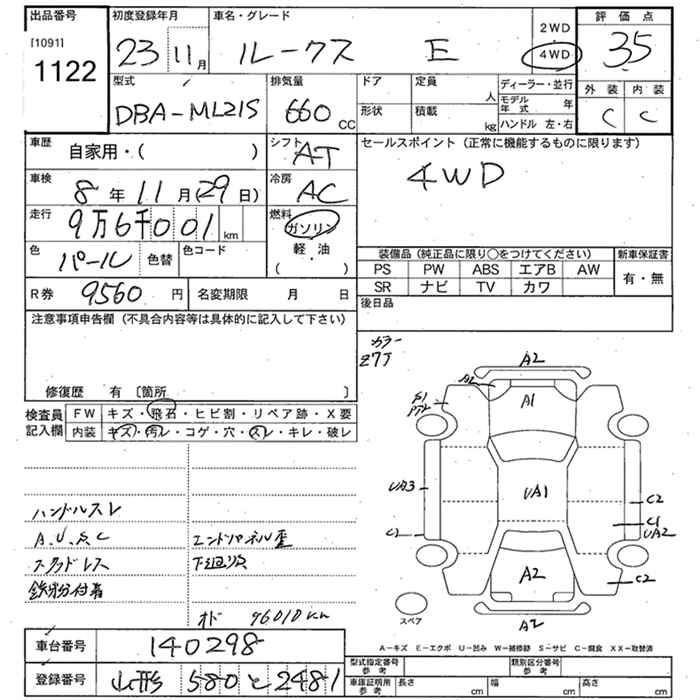 出品番号
[1091]
1122
初度登録年月
23 11月
車名・グレード
ルークス E
2WD
4WD
評価点
3.5
外装 内装
C C
型式
DBA-ML21S
排気量
660 cc
ドア
形状
定員 人
積載 kg
ディーラー・並行
モデル年式 年
ハンドル 左・右
車歴
自家用・( )
シフト
AT
セールスポイント (正常に機能するものに限ります)
4WD
車検
8年11月(29日)
冷房
AC
走行
9万6千001km
燃料
ガソリン
軽・油
( ・ )
色
パール
色替
色コード
装備品 (純正品に限り○をつけてください)
新車保証書
PS PW ABS エアB AW
SR ナビ TV カワ
有・無
R券 9560円
名変期限 月 日
後日品
注意事項申告欄 (不具合内容等は具体的に記入して下さい)
修復歴 有 〔箇所 〕
検査員記入欄
FW キズ・飛石・ヒビ割・リペア跡・X要
内装 キズ・汚レ・コゲ・穴・スレ・キレ・破レ
カラー
Z7T
A2
A2
A1
S1
UA3
UA1
C2
C1
C1
UA2
A2
C2
A2
スペア
ハンドルスレ
A.U.S.C
エンドパネル歪
スタッドレス
下廻りS
鉄粉付着
オド 96010km
A-キズ E-エクボ U-凹み W-補修跡 S-サビ C-腐食 XX-取替済
車台番号
140298
登録番号
山形 580 と 2481
型式指定番号 参考
類別区分番号 参考
車庫証明用 参考
長さ cm
幅 cm
高さ cm